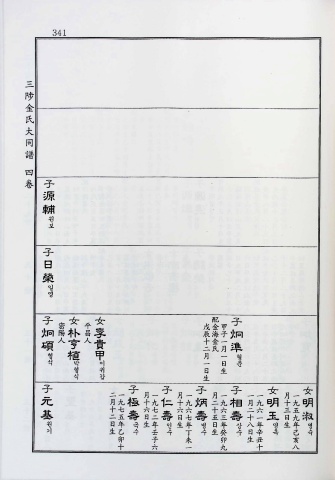 341
三陟金氏大同譜 四卷
子源輔 원보
子日榮 일영
子炯準 형준
甲子一月一日生
配金海金氏
戊辰十二月一日生
女李貴甲 이귀갑
平昌人
女朴亨植 박형식
密陽人
子炯碩 형석
女明淑 명숙
一九五九年己亥八
月十三日生
女明玉 명옥
一九六一年辛丑十
二月二十八日生
子相壽 상수
一九六三年癸卯九
月二十五日生
子炳壽 병수
一九六七年丁未一
月十六日生
子仁壽 인수
一九七二年壬子六
月十六日生
子極壽 극수
一九七五年乙卯十
二月十二日生
子元基 원기